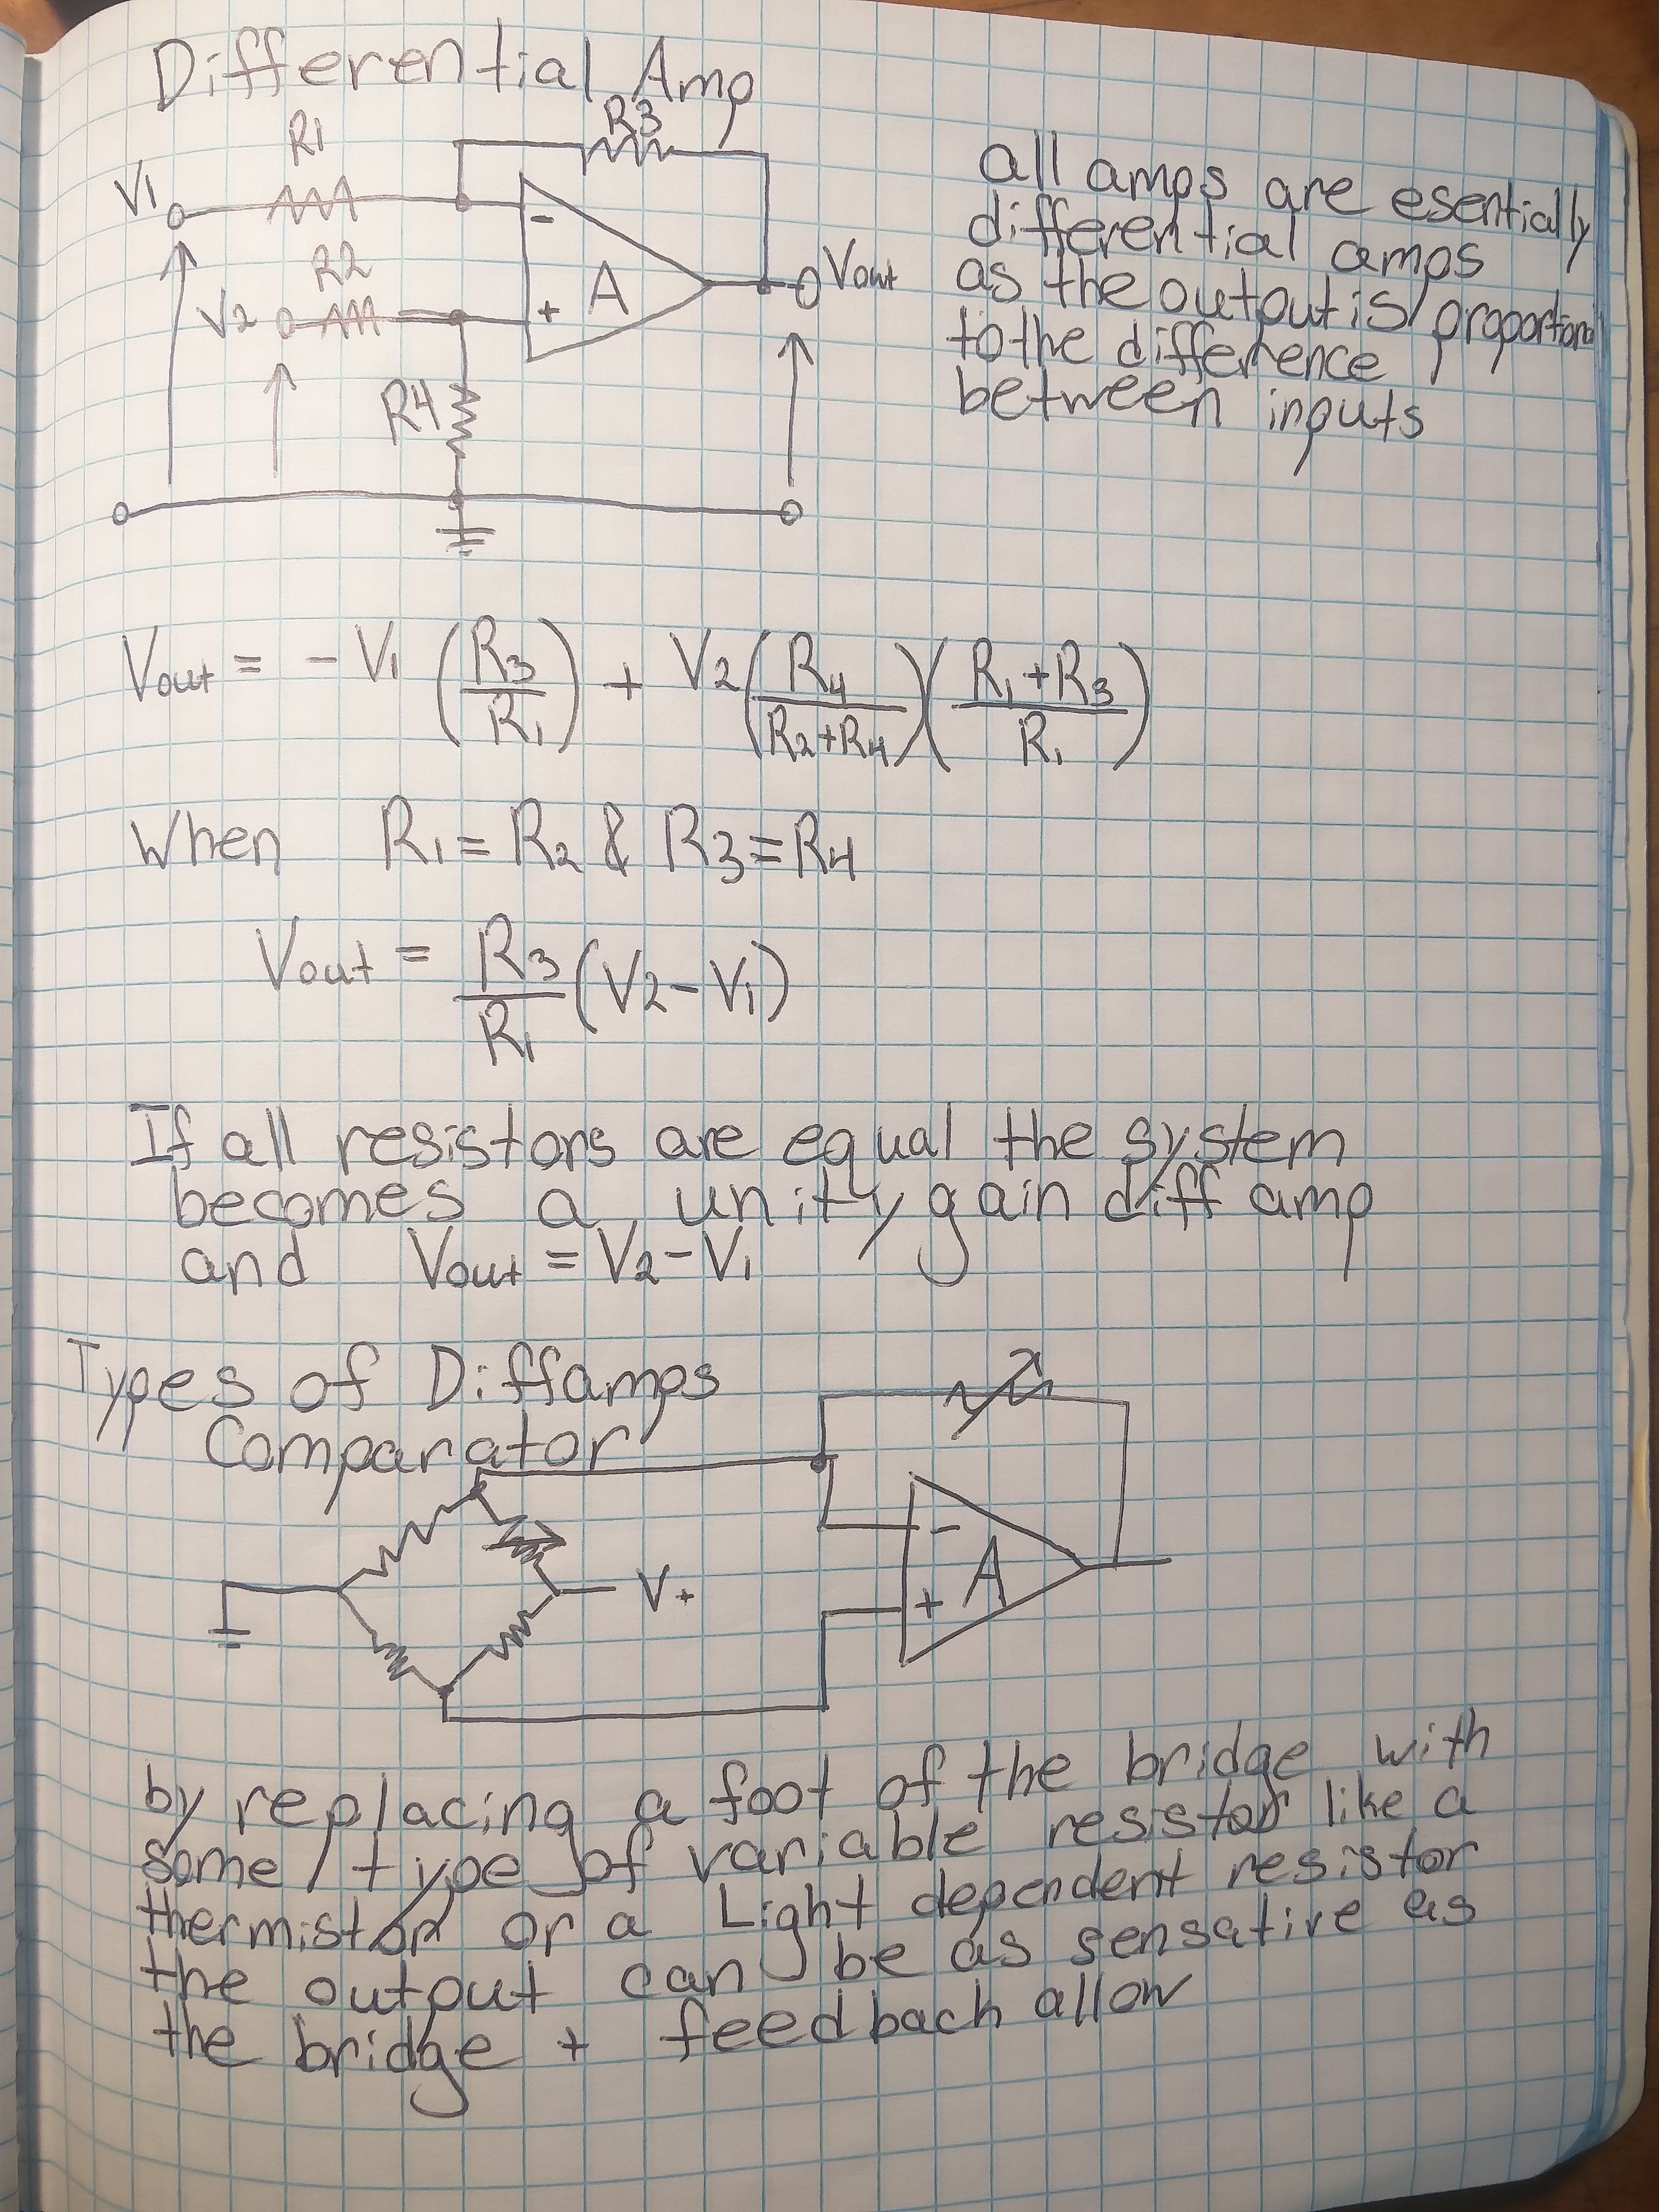 Differential Amp
R1
R3
V1
-
R2
A
Vout
V2
+
R4
all amps are esentially
differential amps
as the output is proportional
to the difference
between inputs
Vout = -V1 (R3/R1) + V2(R4/(R2+R4))((R1+R3)/R1)
When R1 = R2 & R3 = R4
Vout = R3/R1 (V2-V1)
If all resistors are equal the system
becomes a unity gain diff amp
and Vout = V2-V1
Types of Diffamps
Comparator
-
A
V+
+
by replacing a foot of the bridge with
some type of variable resistor like a
thermistor or a Light dependent resistor
the output can be as sensative as
the bridge + feedback allow